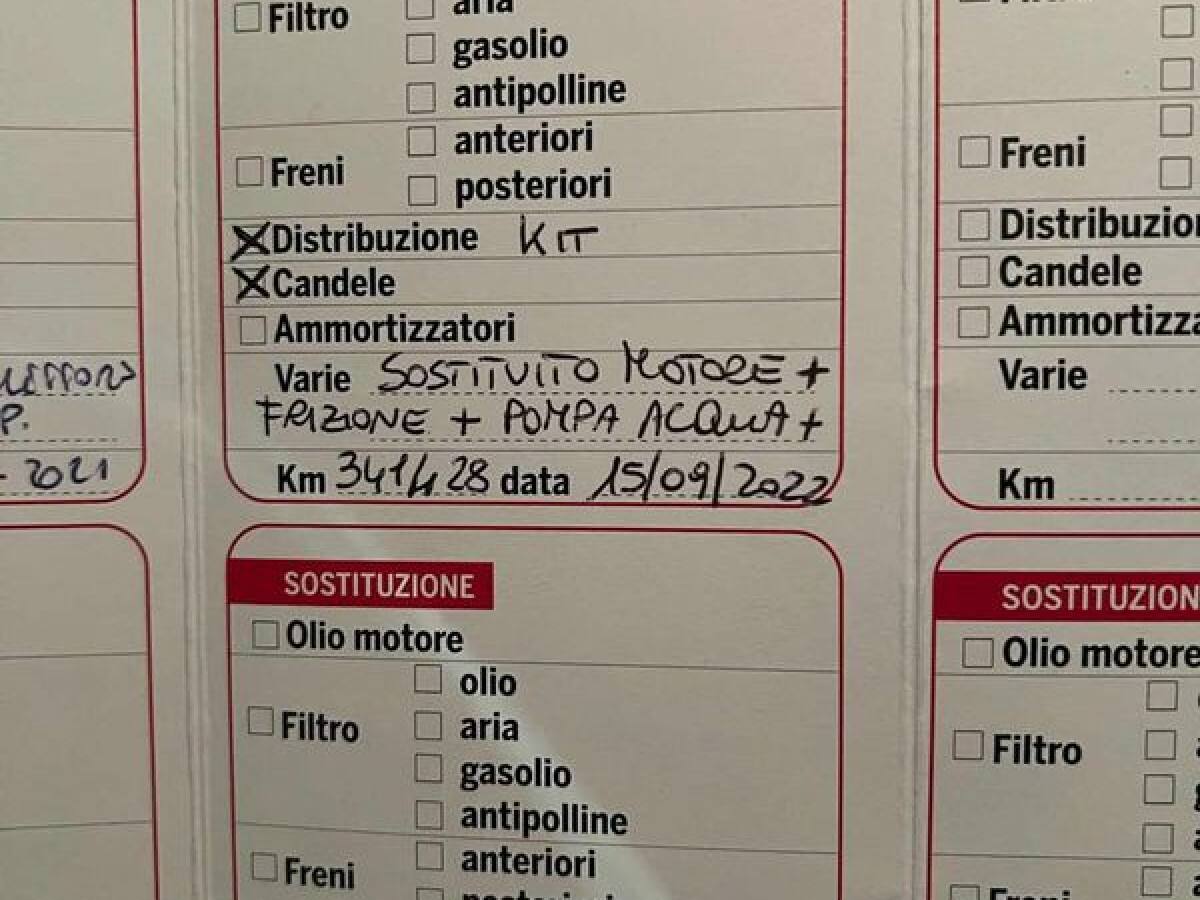 Filtro
aria
gasolio
antipolline
Freni
anteriori
posteriori
Distribuzione KIT
Candele
Ammortizzatori
Varie SOSTITUITO MOTORE +
FRIZIONE + POMPA ACQUA +
Km 341428 data 15/09/2022
SOSTITUZIONE
Olio motore
Filtro
olio
aria
gasolio
antipolline
Freni
anteriori
posteriori
P.
- 2021
Freni
Distribuzion
Candele
Ammortizza
Varie
Km
SOSTITUZION
Olio motore
Filtro
Freni